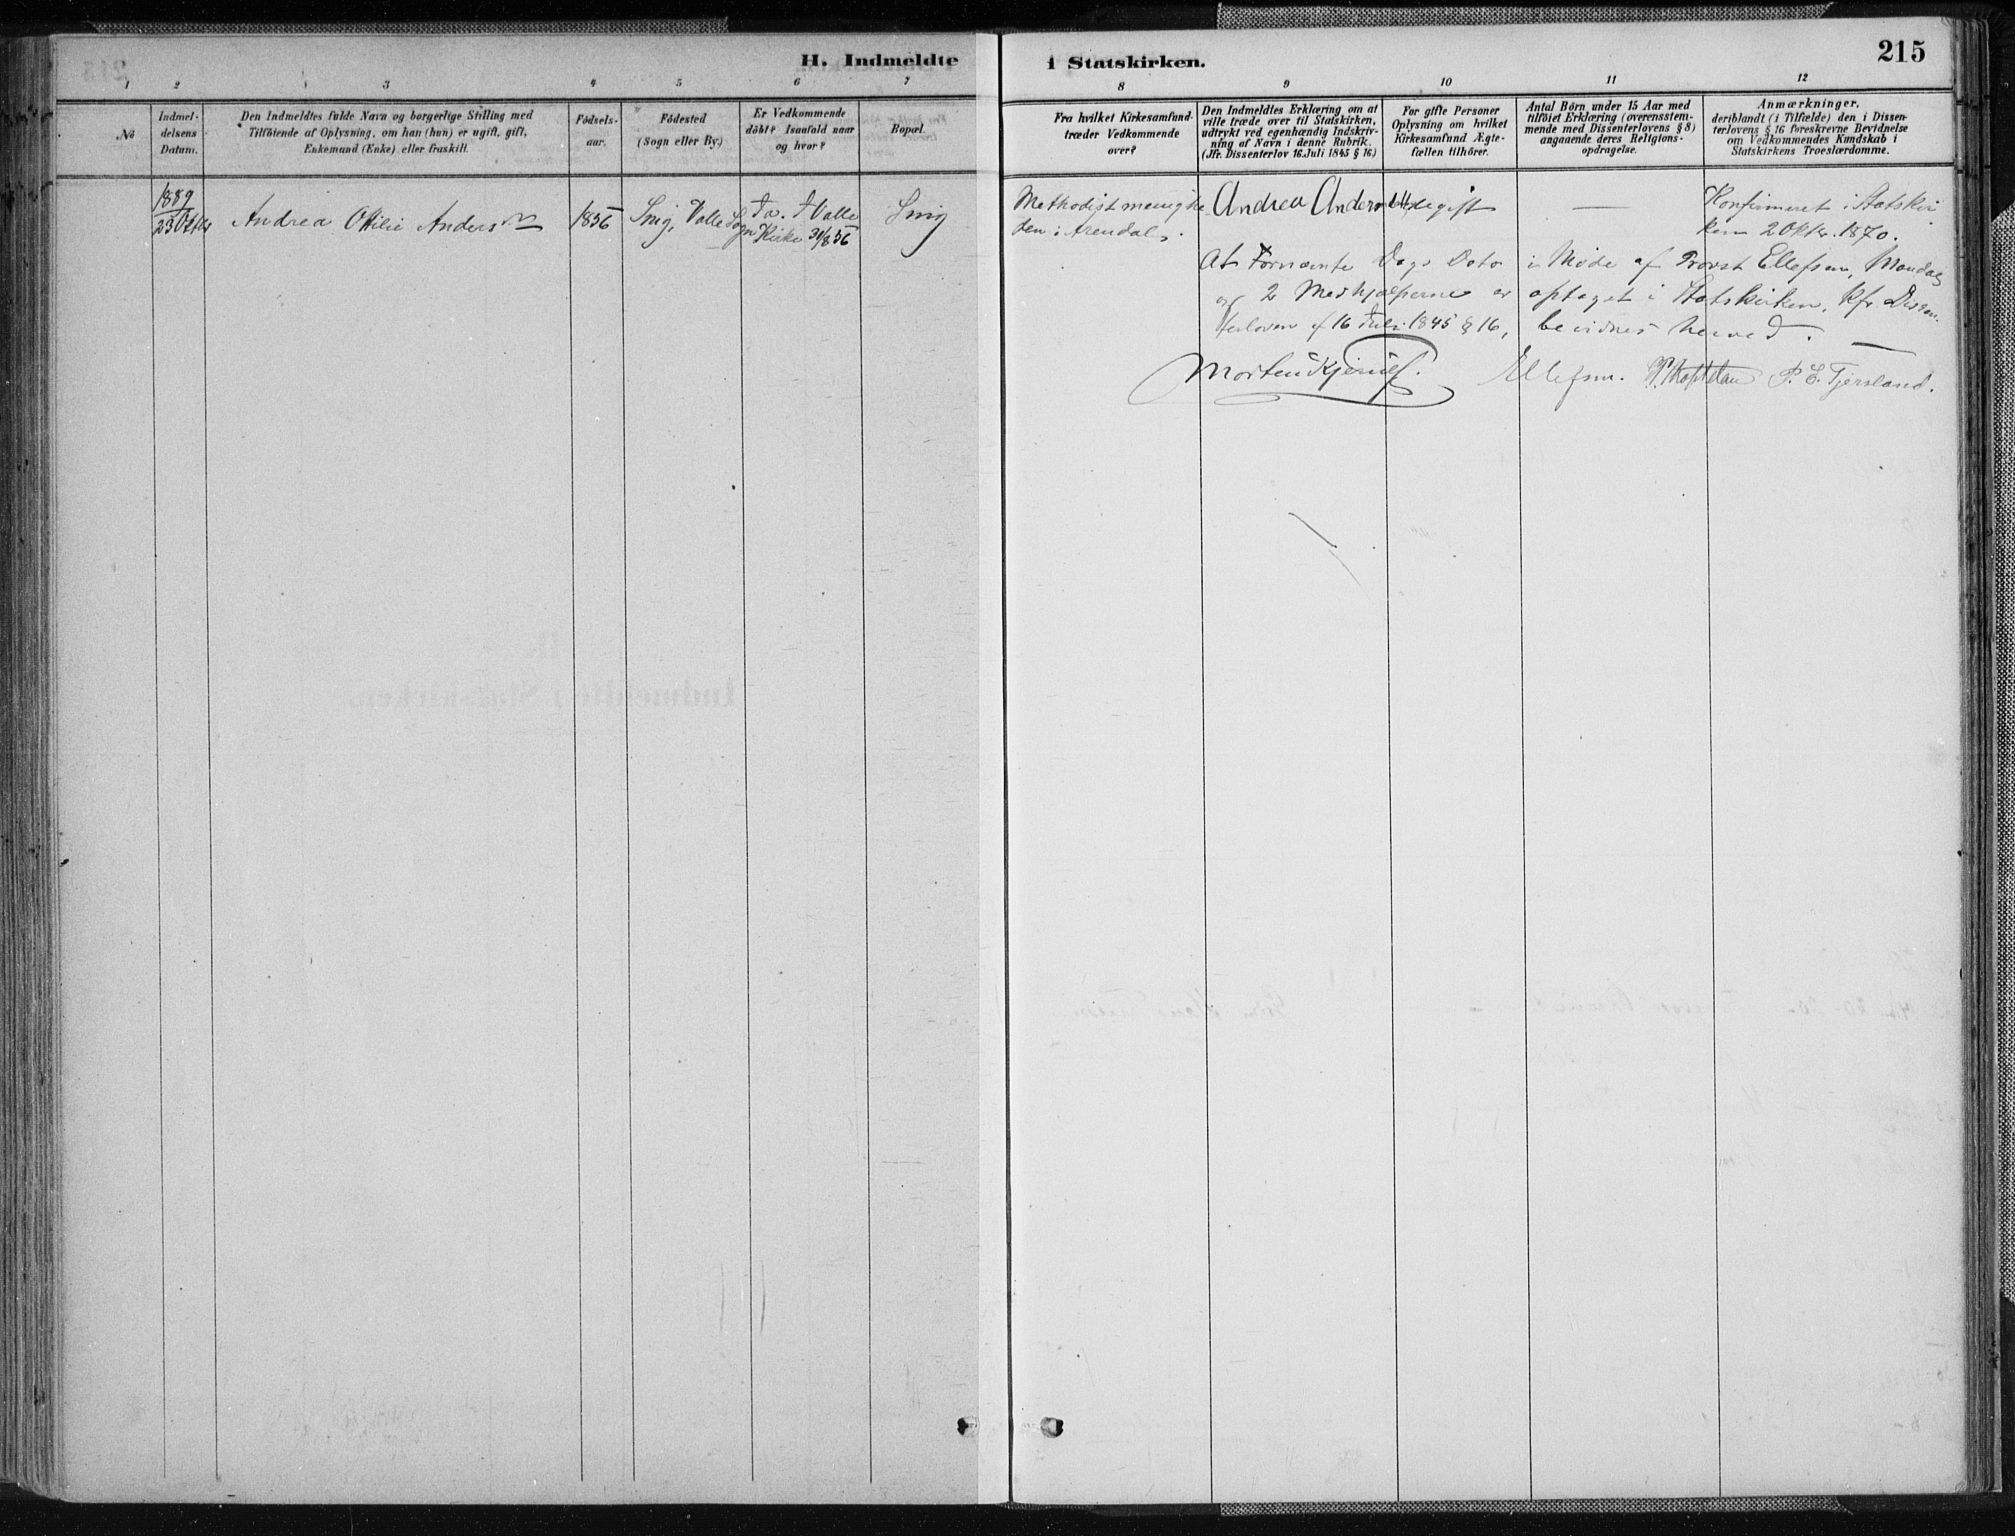 H. Indmeldte i Statskirken.
215
1 2 3 4 5 6 7 8 9 10 11 12
No
Indmel-
delsens
Datum.
Den Indmeldtes fulde Navn og borgerlige Stilling med
Tilföiende af Oplysning, om han (hun) er ugift, gift,
Enkemand (Enke) eller fraskilt.
Födsels-
aar.
Födested
(Sogn eller By.)
Er Vedkommende
döbt? Isaafald naar
og hvor?
Bopæl.
Fra hvilket Kirkesamfund
træder Vedkommende
over?
Den Indmeldtes Erklæring om at
ville træde over til Statskirken,
udtrykt ved egenhændig Indskriv-
ning af Navn i denne Rubrik.
(Jfr. Dissenterlov 16. Juli 1845 § 16)
For gifte Personer
Oplysning om hvilket
Kirkesamfund Ægte-
fællen tilhörer.
Antal Börn under 15 Aar med
tilföiet Erklæring (overensstem-
mende med Dissenterlovens § 8)
angaaende deres Religions-
opdragelse.
Anmærkninger,
deriblandt (i Tilfælde) den i Dissen-
terlovens § 16 foreskrevne Bevidnelse
om Vedkommendes Kundskab i
Statskirkens Troeslærdomme.
1889
23 Oktbr
Andrea Otilie Andersen
1856
Snig, Valle Sogn
Ja. I Valle
Kirke 31/8 56
Snig
Methodistmenighe
den i Arendal.
Andrea Andersen
Ugift
—
Konfirmeret i Statskir
ken 2 Okter. 1870.
At Fornævnte Dags Dato i Møde af Provst Ellefsen, Mandal,
og 2 Medhjælperne er optaget i Statskirken, kfr. Dissen-
terloven af 16 Juli 1845 § 16, bevidnes herved. —
Ellefsen. P. E. Tjersland.